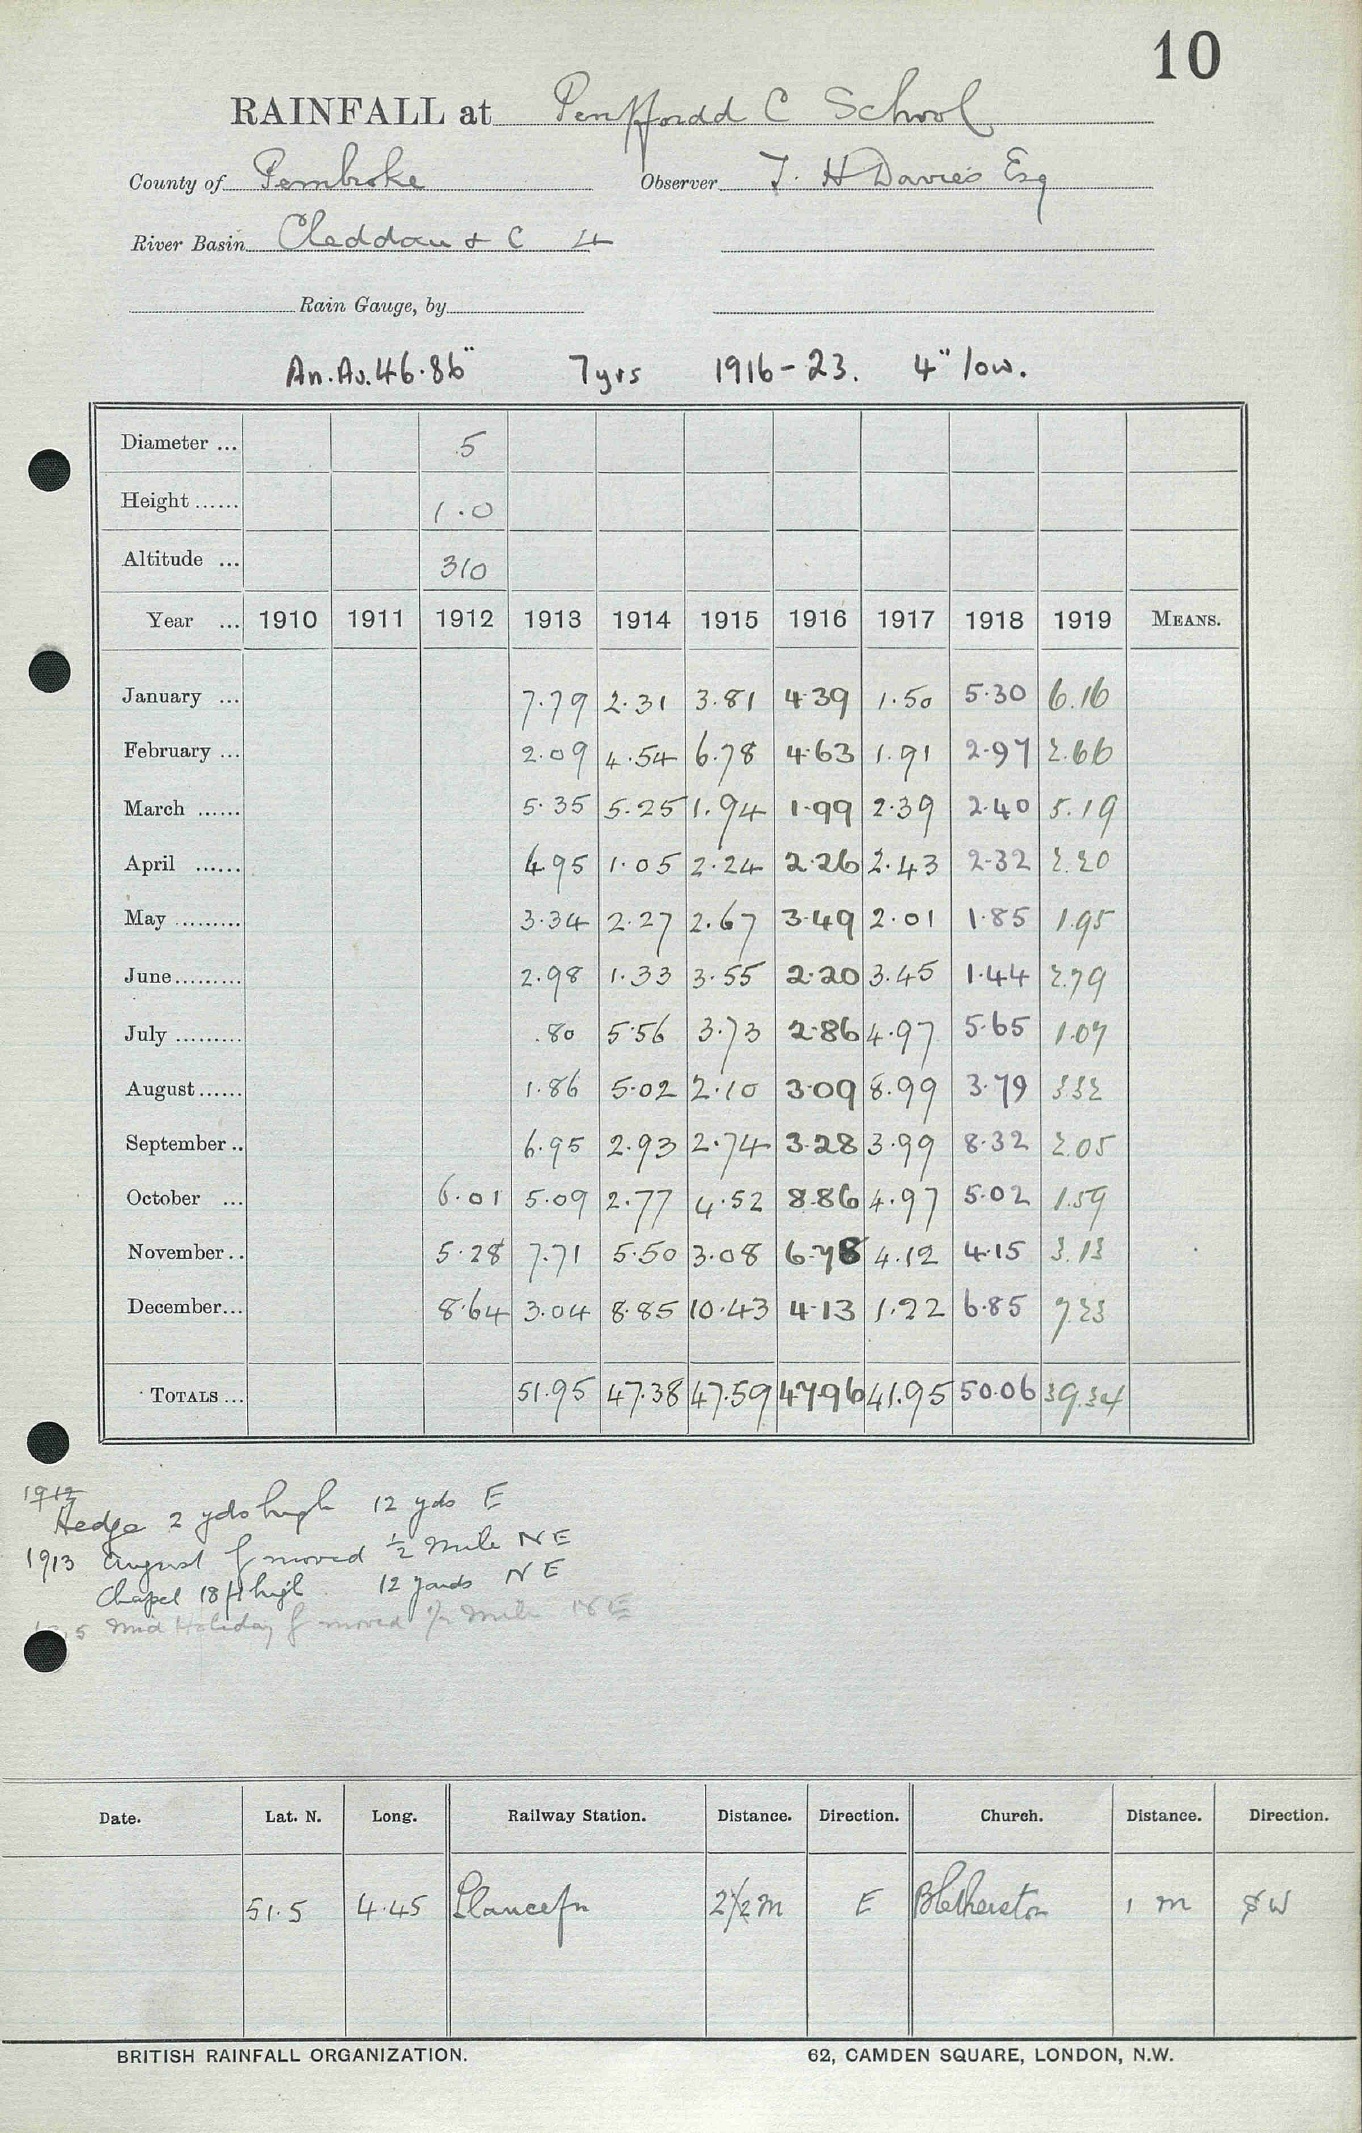 10
RAINFALL at Penffordd C School
County of Pembroke Observer T. H Davies Esq
River Basin Cleddau & C 4
Rain Gauge, by
An. Av. 46.86" 7 yrs 1916-23. 4" low.
Diameter ... 5
Height ...... 1.0
Altitude ... 310
Year ... 1910 1911 1912 1913 1914 1915 1916 1917 1918 1919 MEANS.
January ... 7.79 2.31 3.81 4.39 1.50 5.30 6.16
February ... 2.09 4.54 6.78 4.63 1.91 2.97 2.66
March ...... 5.35 5.25 1.94 1.99 2.39 2.40 5.19
April ...... 4.95 1.05 2.24 2.26 2.43 2.32 2.20
May ......... 3.34 2.27 2.67 3.49 2.01 1.85 1.95
June......... 2.98 1.33 3.55 2.20 3.45 1.44 2.79
July ......... .80 5.56 3.73 2.86 4.97 5.65 1.07
August...... 1.86 5.02 2.10 3.09 8.99 3.79 3.32
September.. 6.95 2.93 2.74 3.28 3.99 8.32 2.05
October ... 6.01 5.09 2.77 4.52 8.86 4.97 5.02 1.59
November.. 5.28 7.71 5.50 3.08 6.78 4.12 4.15 3.13
December... 8.64 3.04 8.85 10.43 4.13 1.22 6.85 7.23
TOTALS ... 51.95 47.38 47.59 47.96 41.95 50.06 39.34
1912
Hedge 2 yds high 12 yds E
1913 August g moved 1/2 Mile NE
Chapel 18 ft high 12 yards NE
Mid Holiday g moved 1/2 Mile
Date. Lat. N. Long. Railway Station. Distance. Direction. Church. Distance. Direction.
51.5 4.45 Llancefn 2 1/2 m E Bletherston 1 m SW
BRITISH RAINFALL ORGANIZATION. 62, CAMDEN SQUARE, LONDON, N.W.